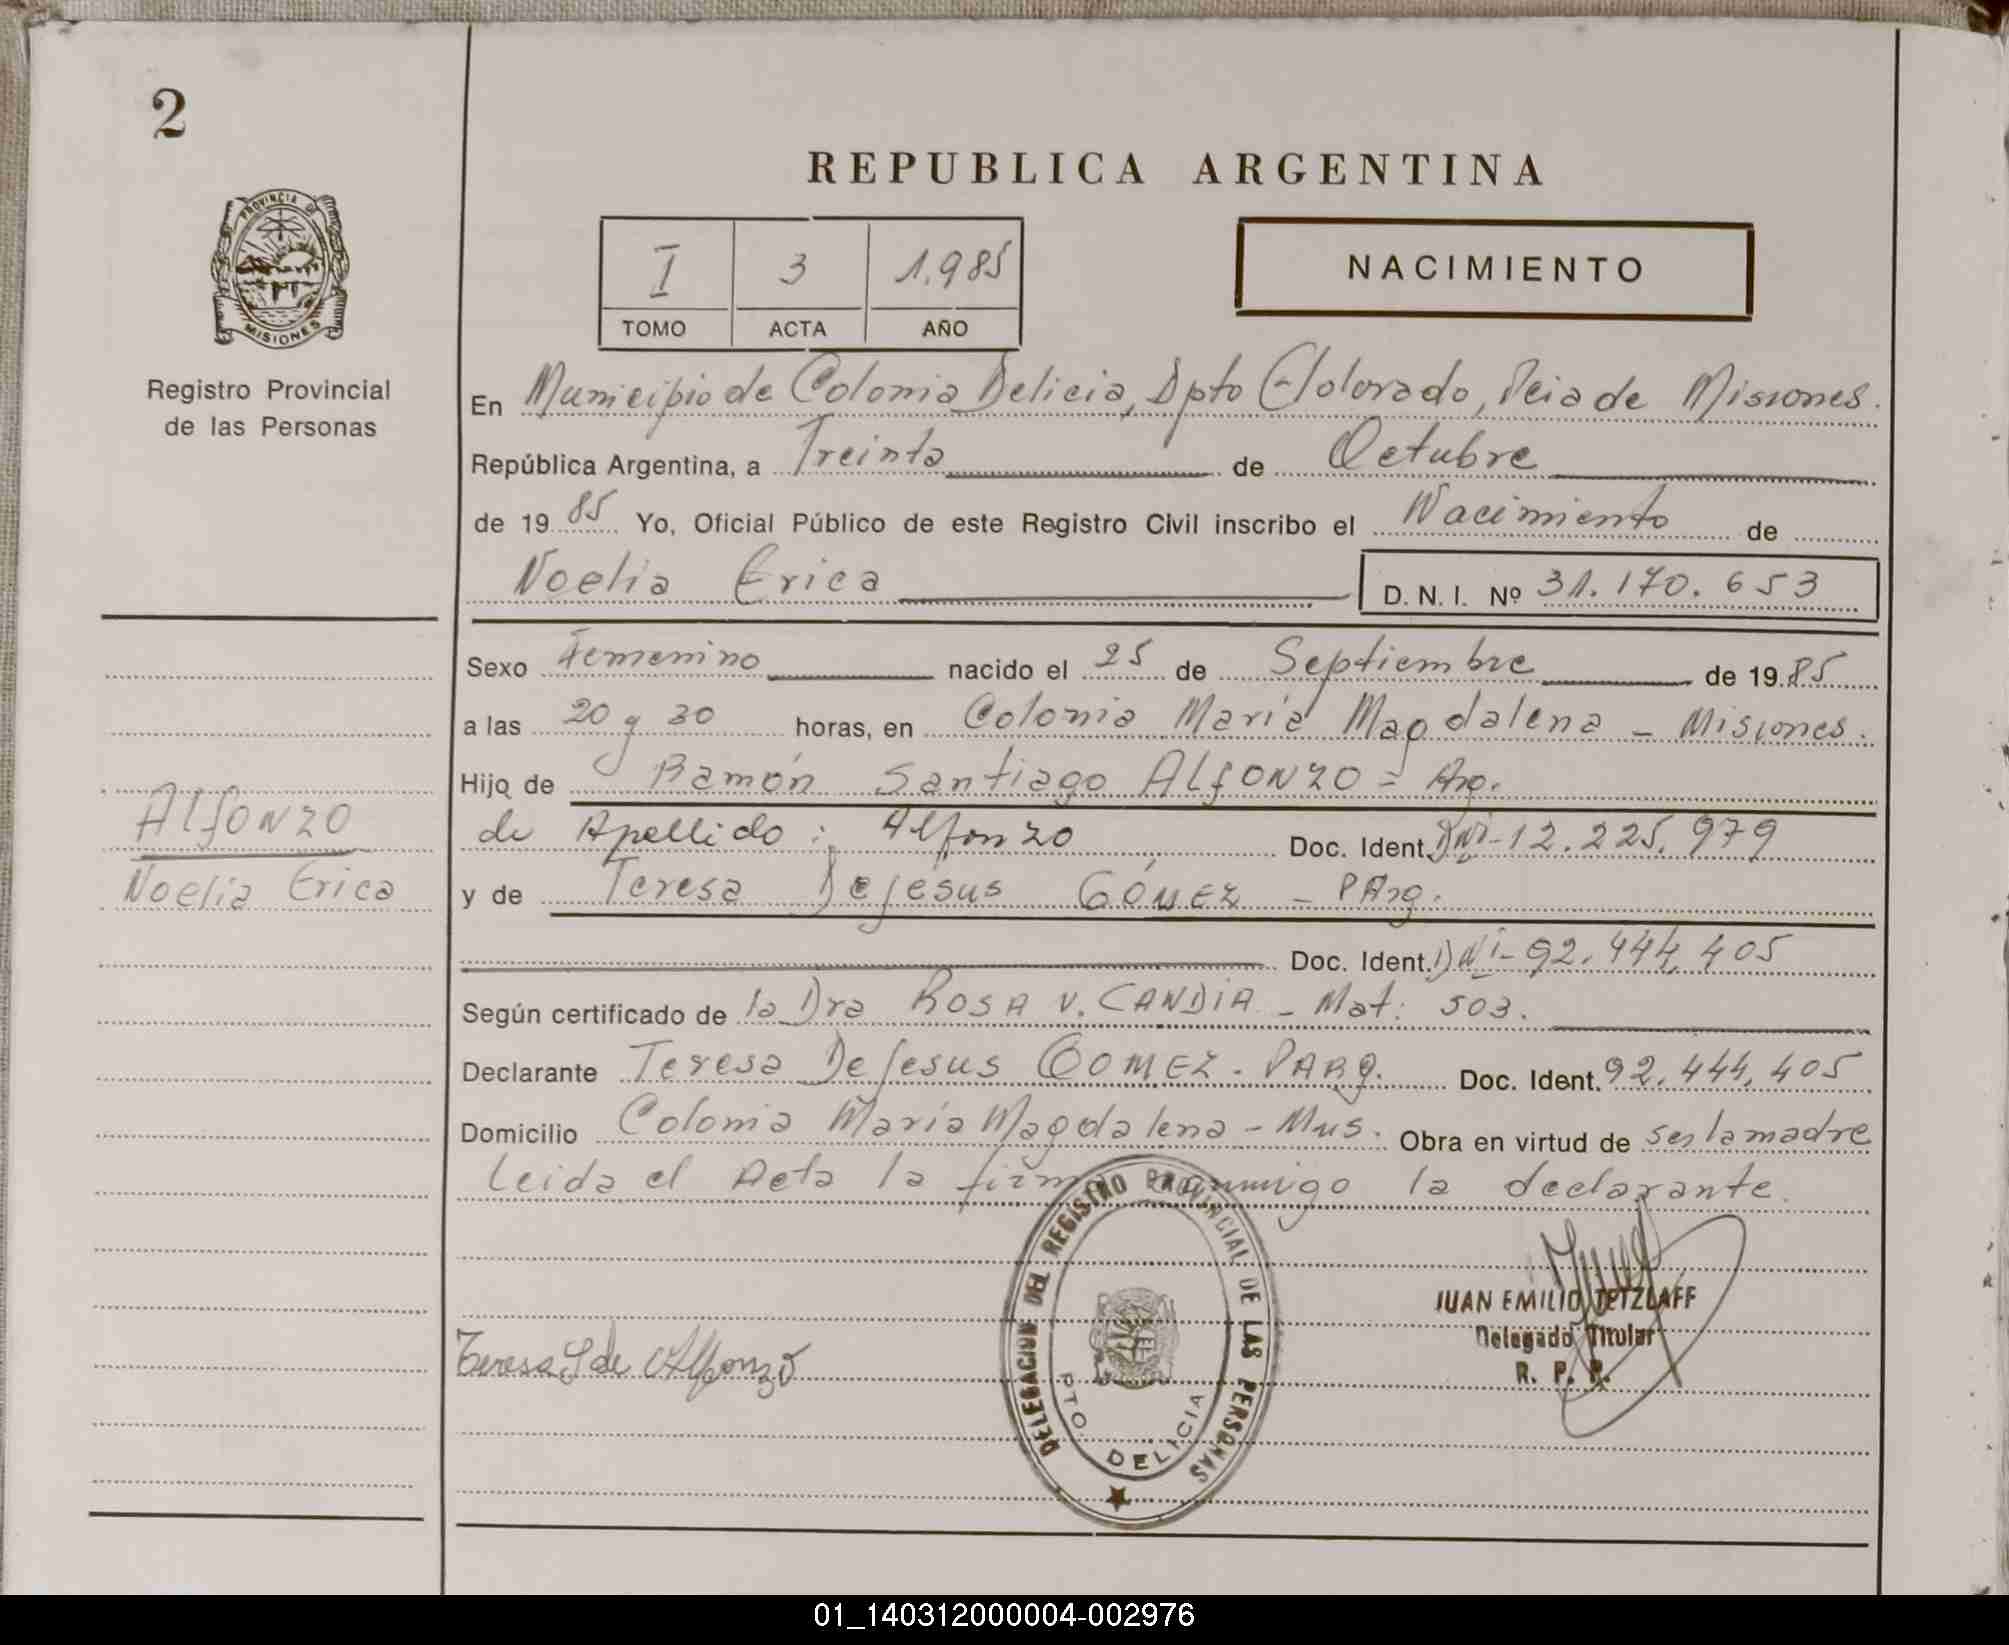 2
REPUBLICA ARGENTINA
PROVINCIA DE
MISIONES
Registro Provincial
de las Personas
I 3 1.985
TOMO ACTA AÑO
NACIMIENTO
En Municipio de Colonia Delicia, Dpto Eldorado, Pcia de Misiones.
República Argentina, a Treinta de Octubre
de 1985 Yo, Oficial Público de este Registro Civil inscribo el Nacimiento de
Noelia Erica D. N. I. Nº 31.170.653
Sexo Femenino nacido el 25 de Septiembre de 1985
a las 20 y 30 horas, en Colonia María Magdalena - Misiones.
Hijo de Ramón Santiago ALfONZO = Arg.
de Apellido: Alfonzo Doc. Ident. DNI-12.225.979
y de Teresa DeJesus GÓMEZ - PArg.
Doc. Ident. DNI-92.444.405
Según certificado de la Dra ROSA V. CANDIA - Mat: 503.
Declarante Teresa DeJesus GOMEZ - PARg. Doc. Ident. 92.444.405
Domicilio Colonia María Magdalena - Mns. Obra en virtud de ser la madre
Leida el Acta la firma conmigo la declarante.
Alfonzo
Noelia Erica
Teresa G de Alfonzo
DELEGACION DEL REGISTRO PROVINCIAL DE LAS PERSONAS
PTO. DELICIA
JUAN EMILIO TETZLAFF
Delegado Titular
R. P. P.
01_140312000004-002976